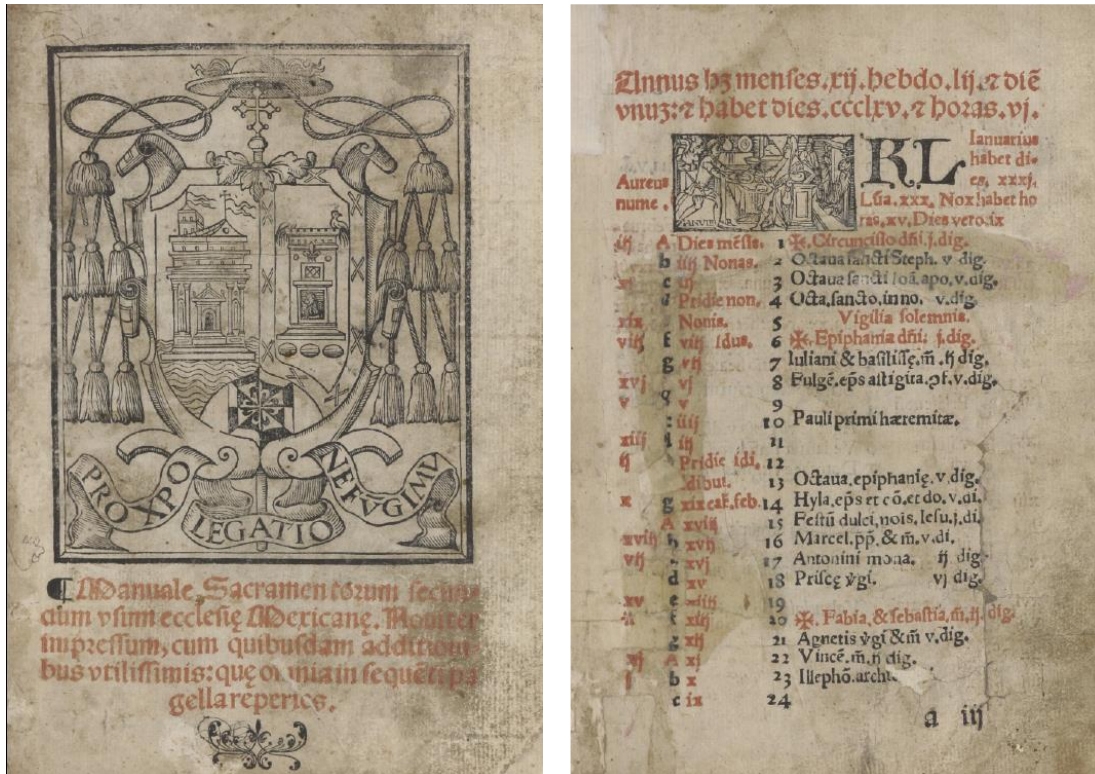 PRO XPO
LEGATIO
NE FVGIMV
¶ Manuale Sacramentorum secun
dum vsum ecclesię Mexicanę. Nouiter
impressum, cum quibusdam additioni
bus vtilissimis: quę omnia in sequẽti pa
gella reperies.
Annus hꝫ menses. xij. hebdo. lij. ⁊ diẽ
vnuꝫ: ⁊ habet dies. ccclxv. ⁊ horas. vj.
KL Ianuarius
habet di-
es. xxxj.
Aureus
nume.
Lũa. xxx. Nox habet ho
ras. xv. Dies vero. ix
iij A Dies mẽsis. 1 ✠. Circuncisio dñi. j. dig.
b iiij Nonas. 2 Octaua sancti Steph. v dig.
xj c iij 3 Octaua sancti Ioã. apo. v. dig.
d Pridie non. 4 Octa. sancto. inno. v. dig.
xix Nonis. 5 Vigilia solemnis.
viij f viij Idus. 6 ✠. Epiphania dñi: j. dig.
g vij 7 Iuliani & basilissę. m̃. ij dig.
xvj vj 8 Fulgẽ. ep̃s astigita. ɔf. v. dig.
v v 9
iiij 10 Pauli primi hæremitæ.
xiij iij 11
ij Pridie idi. 12
dibus. 13 Octaua. epiphanię. v dig.
x g xix cal. feb. 14 Hyla. ep̃s et cõ. et do. v. di.
A xviij 15 Festũ dulci. nois. Iesu. j. di.
xviij b xvij 16 Marcel. pp̃. & m̃. v. di.
vij xvj 17 Antonini mona. ij dig.
d xv 18 Priscę v̓gi. vj dig.
xv e xiiij 19
f xiij 20 ✠. Fabia. & sebastia. m̃. ij. dig.
g xij 21 Agnetis v̓gi & m̃ v. dig.
xj A xj 22 Vincẽ. m̃. ij dig.
j b x 23 Illephõ. archi
c ix 24
a iij